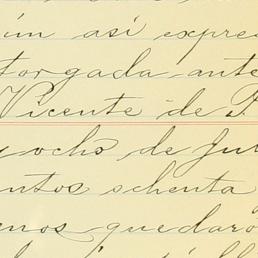 ún así expre
torgada ante
Vicente de P.
y ocho de Ju
ntos ochenta
enos quedaro